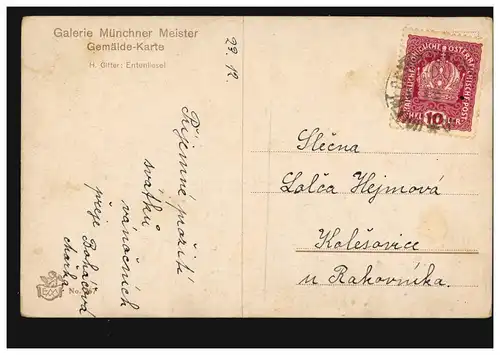 Galerie Münchner Meister
Gemälde-Karte
H. Gitter: Entenliesel
23. 12.
Příjemné prožití
svátků
vánočních
přeje Boháčová
Mařka
No.
KAISERLICHE KÖNIGLICHE ÖSTERREICHISCHE POST
HELLER 10
Slečna
Lolča Hejmová
Kolešovice
u Rakovníka.